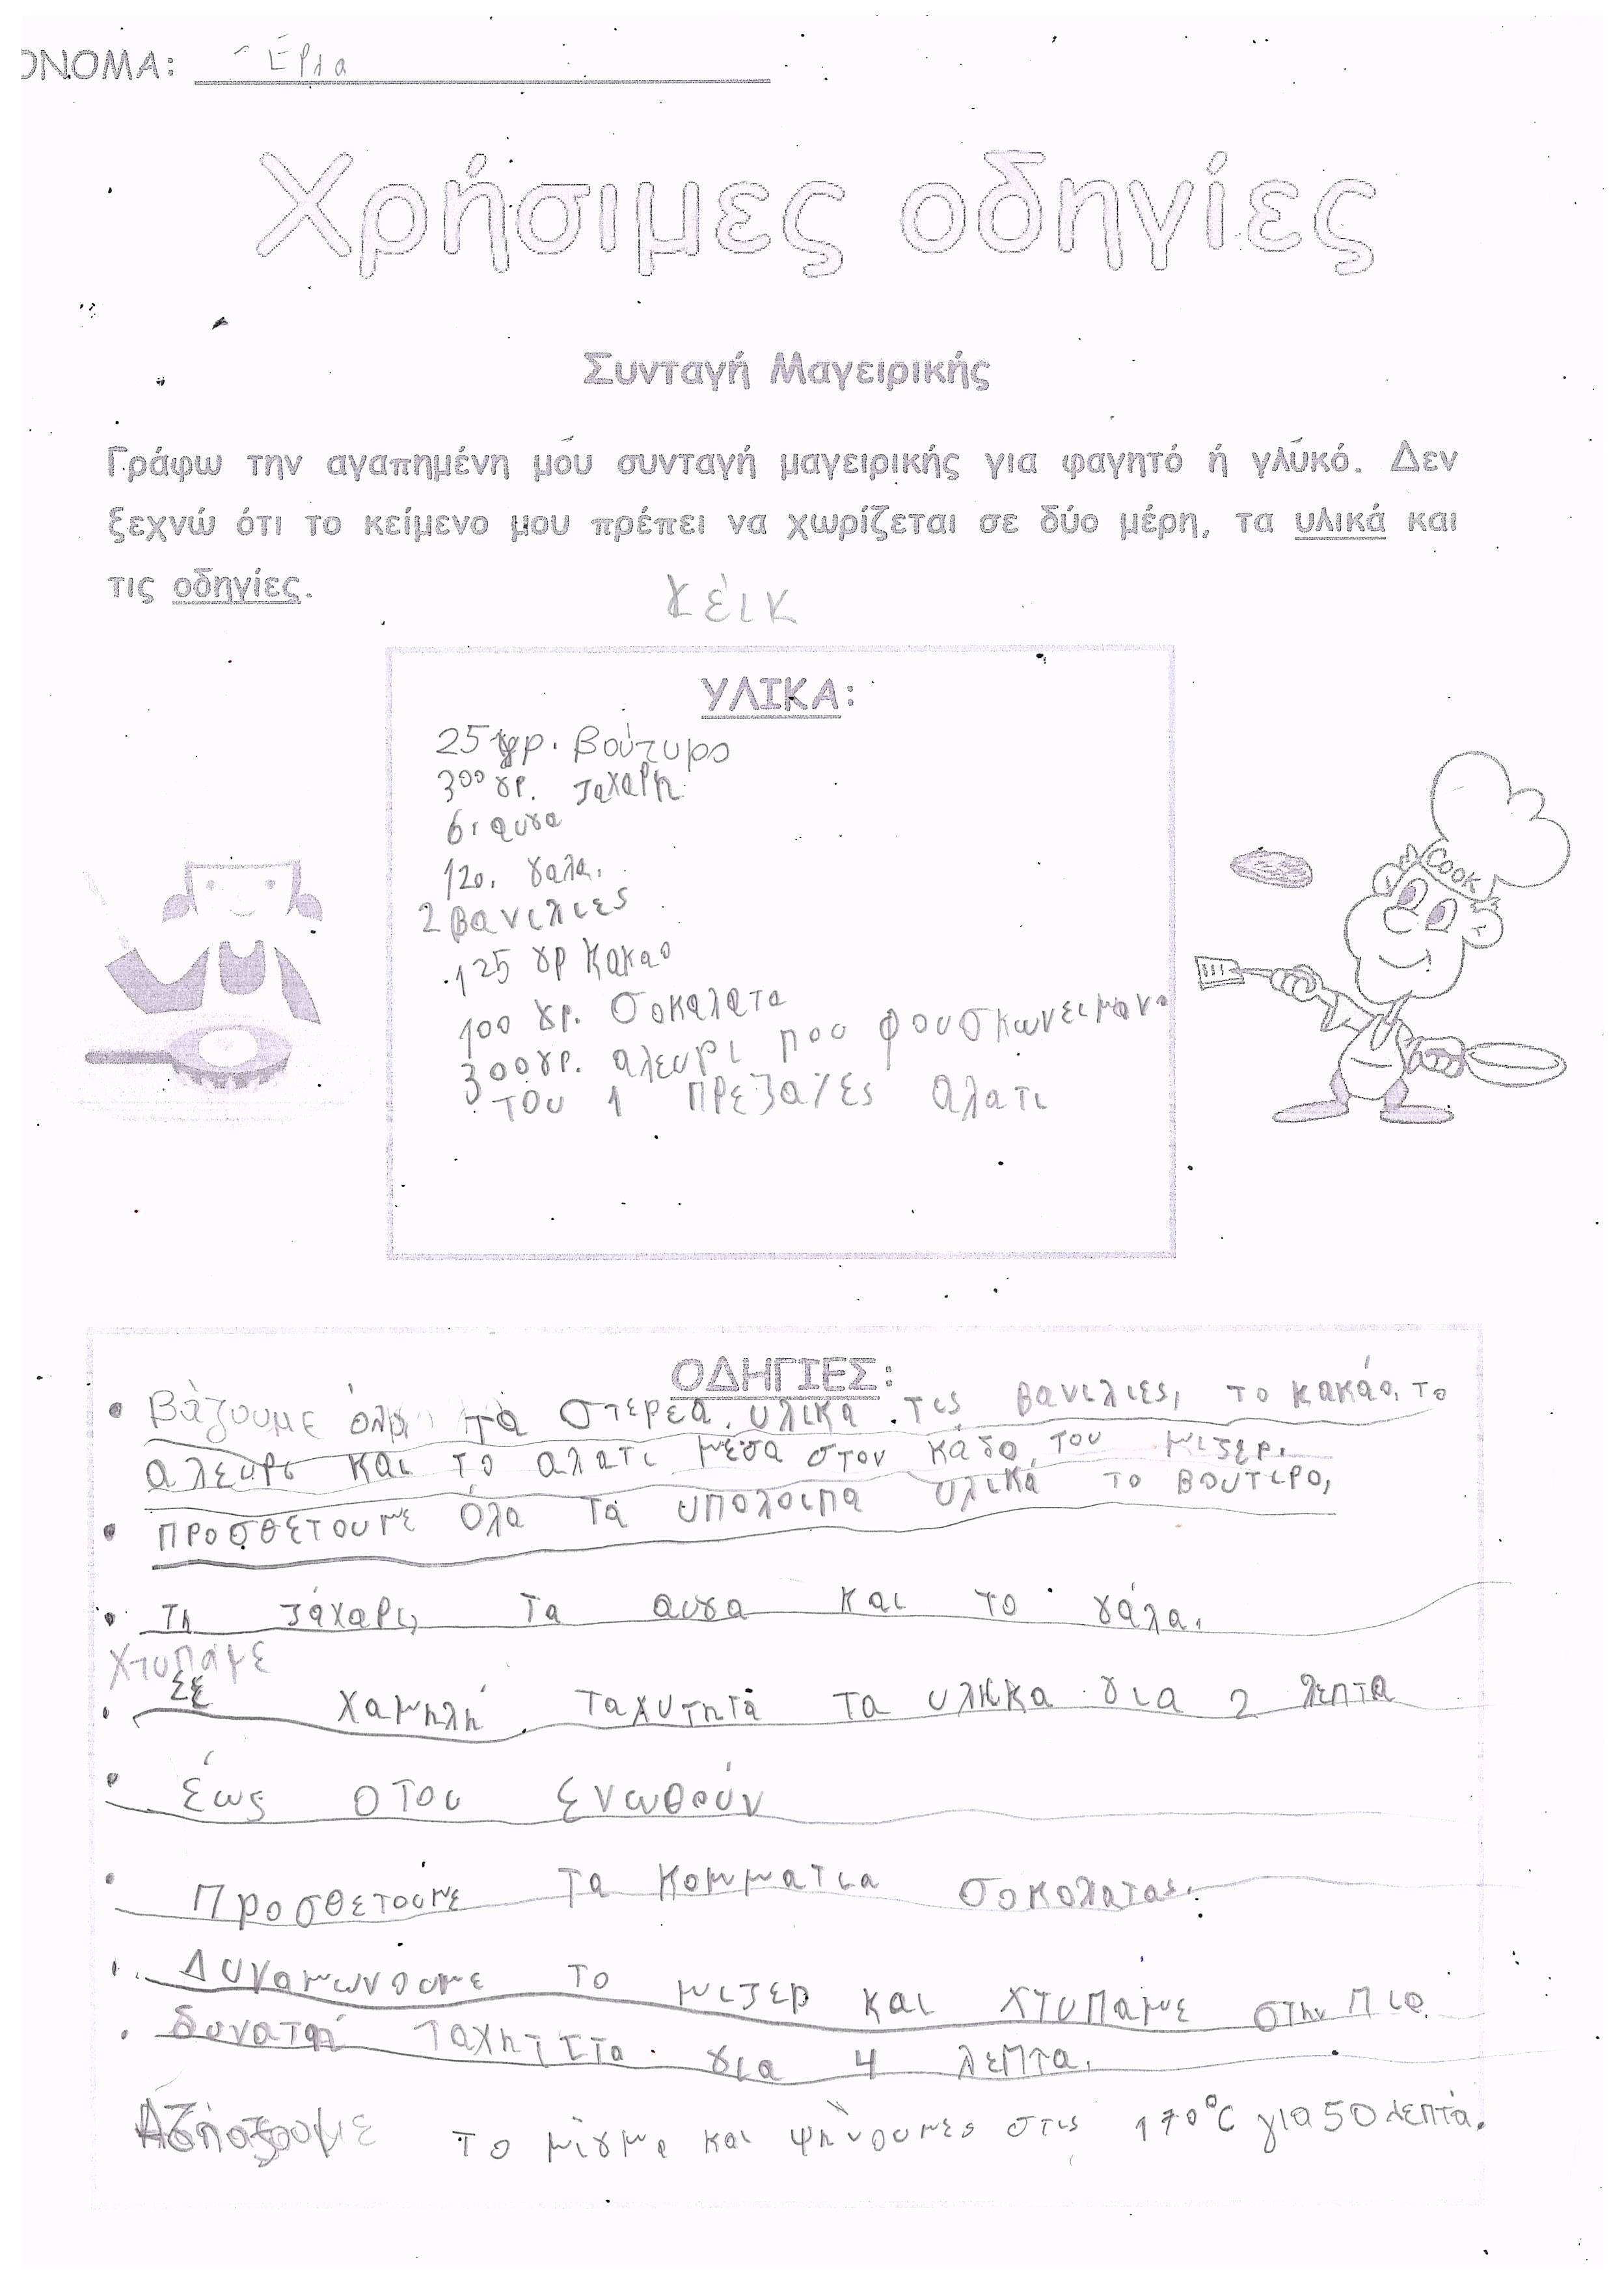 ΟΝΟΜΑ:
Χρήσιμες οδηγίες
Συνταγή Μαγειρικής
Γράφω την αγαπημένη μου συνταγή μαγειρικής για φαγητό ή γλυκό. Δεν
ξεχνώ ότι το κείμενο μου πρέπει να χωρίζεται σε δύο μέρη, τα υλικά και
τις οδηγίες.
κέικ
ΥΛΙΚΑ:
γρ. βούτυρο
300 γρ. ζαχαρη
6 αυγα
120. γαλα.
2 βανιλιες
125 γρ κακαο
100 γρ. σοκαλατα
300γρ. αλευρι που φουσκωνει μονο
του 1 πρεζαγες αλατι
ΟΔΗΓΙΕΣ:
• Βάζουμε όλα τα στερεά υλικα τις βανιλιες, το κακάο, το
αλευρι και το αλατι μεσα στον κάδο του μιζερ.
• προσθετουμε όλα τα υπολοιπα υλικά το βουτιρο,
• τη ζάχαρι, τα αυγα και το γάλα.
χτυπάμε
• Σε χαμηλή ταχυτητα τα υληκα για 2 λεπτα
• έως οτου ενωθούν
• Προσθετουμε τα κομματια σοκολατας.
• Δυναμωνουμε το μιζερ και χτυπάμε στην πιο
• δυνατη για 4 λεπτα.
το μίγμα και ψήνουμες στις 170°C για 50 λεπτά.
Cook